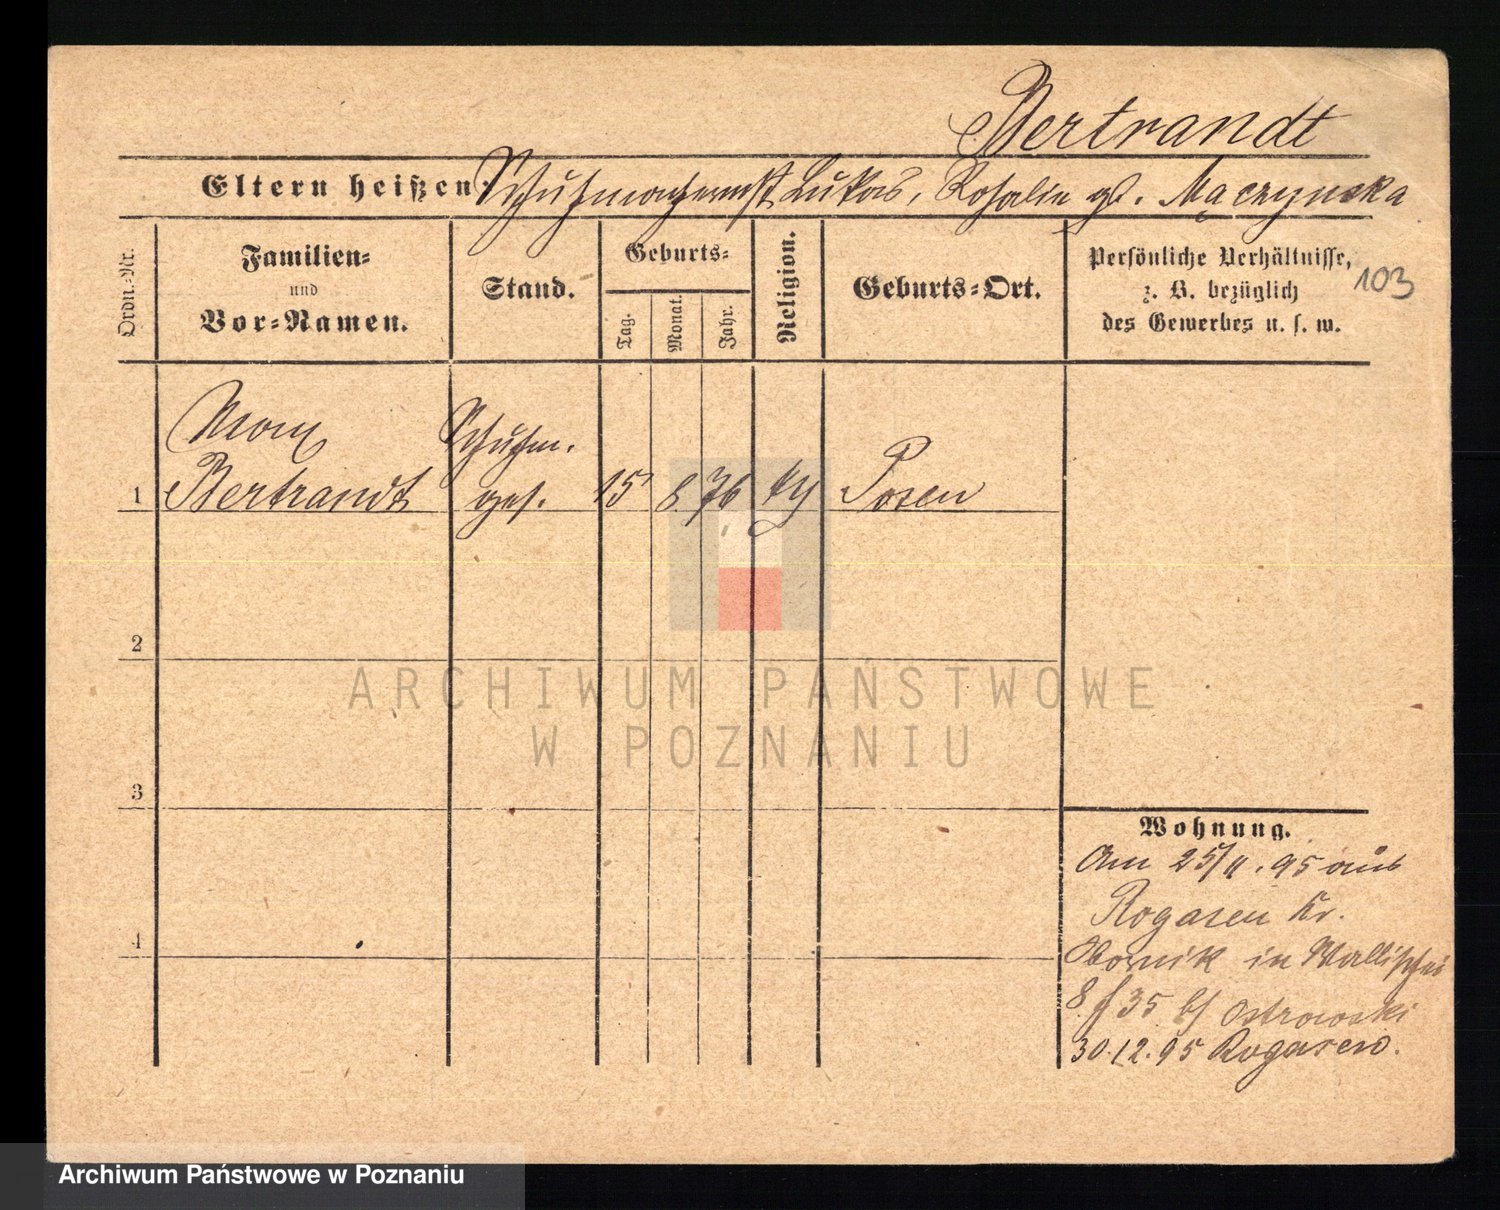 Bertrandt
Eltern heißen: Schuhmacher Lukas, Rosalie gb. Mączynska
Ordn.-Nr.
Familien-
und
Vor-Namen.
Stand.
Geburts-
Tag.
Monat.
Jahr.
Religion.
Geburts-Ort.
Persönliche Verhältnisse,
z. B. bezüglich
des Gewerbes u. s. w.
103
Max
Schuhm.
1 Bertrandt ges. 15 8. 76 Posen
2
3
4
ARCHIWUM PAŃSTWOWE
W POZNANIU
Wohnung.
Am 25/11.95 aus
Rogasen Kr.
Obornik in Wallischei
8 35 bs Ostrowski
30.12.95 Rogasen.
Archiwum Państwowe w Poznaniu